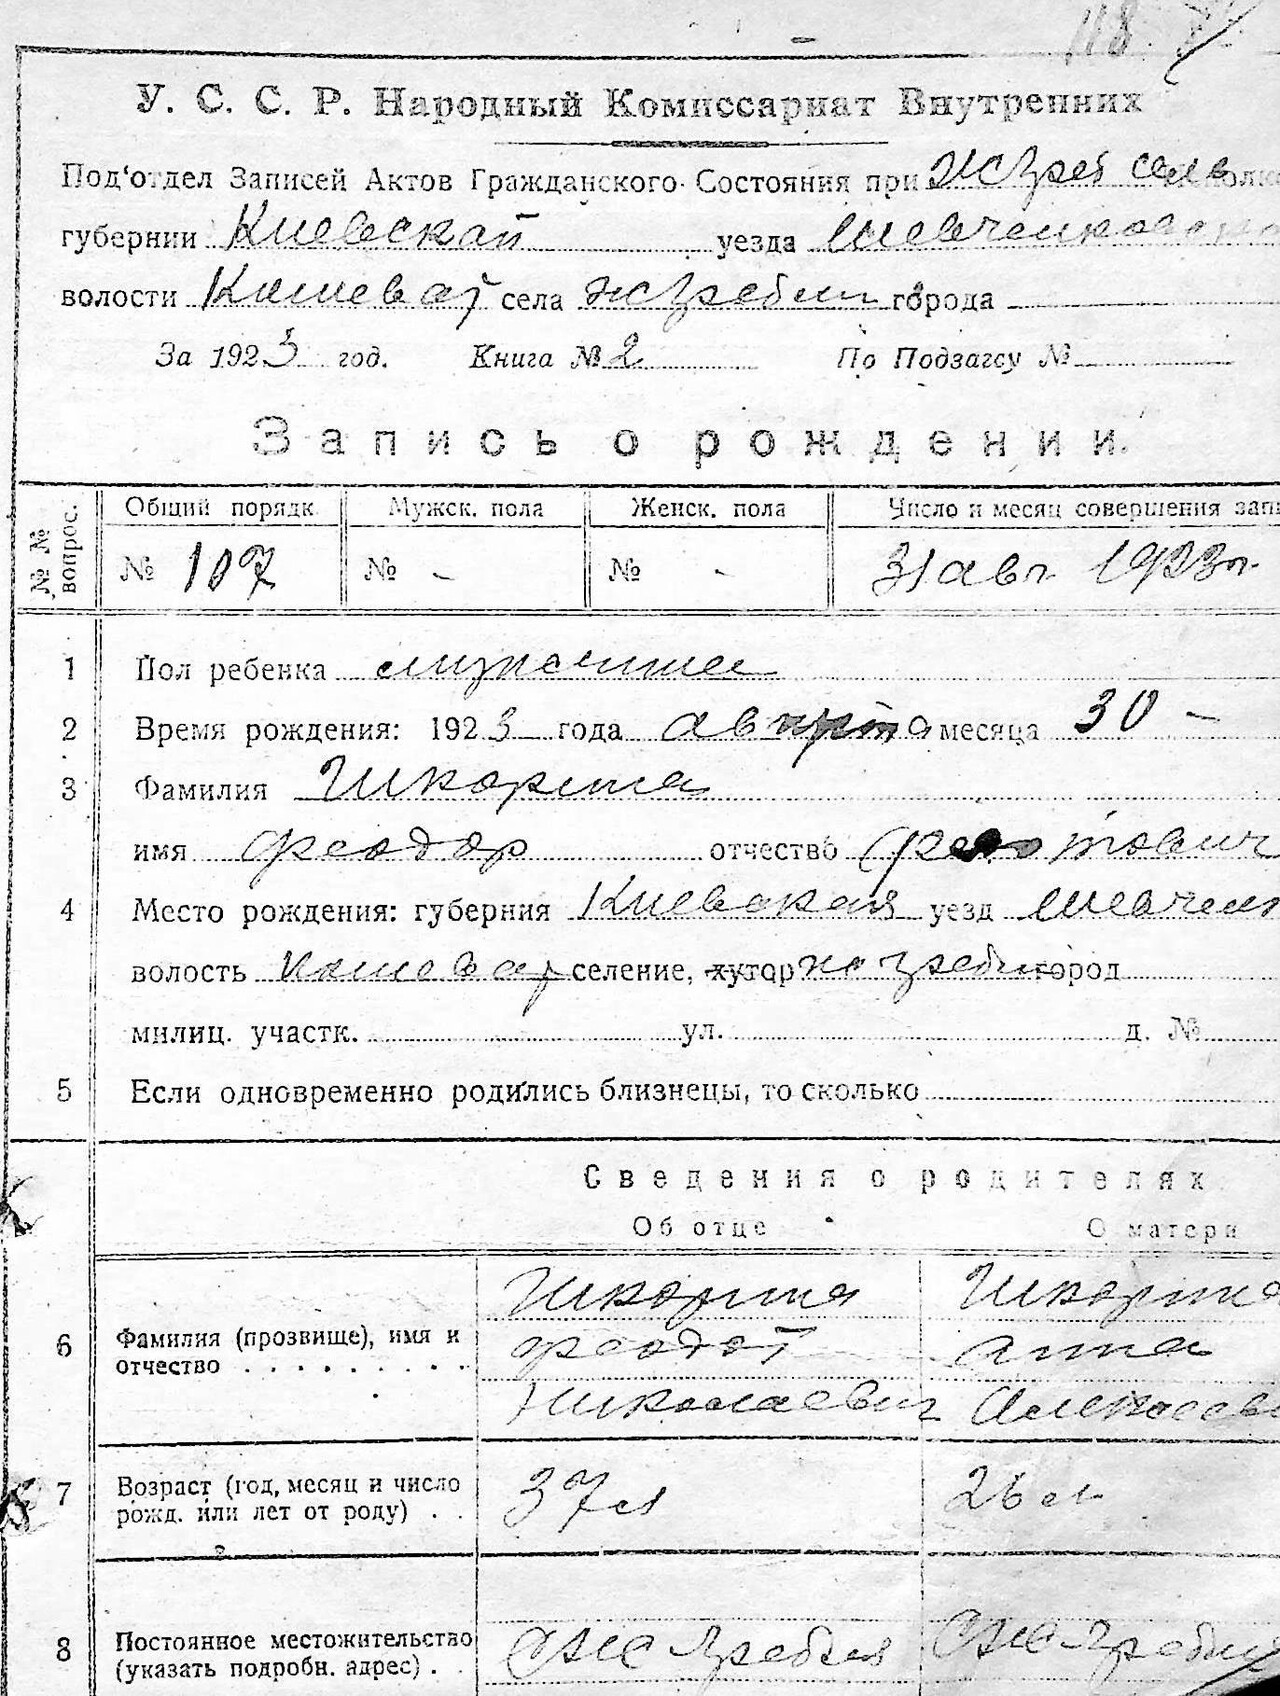 118
У. С. С. Р. Народный Комиссариат Внутренних
Под'отдел Записей Актов Гражданского Состояния при
губернии Киевской уезда Шевченковского
волости Кошеват села Жгребии города
За 1923 год. Книга № 2 По Подзагсу №
Запись о рождении.
№№ вопрос.
Общий порядк. Мужск. пола Женск. пола Число и месяц совершения запи
№ 107 № - № - 31 авг 1923 г.
1 Пол ребенка
2 Время рождения: 1923 года августа месяца 30 -
3 Фамилия Шкорина
имя Феодор отчество Федотович
4 Место рождения: губерния Киевская уезд Шевчен
волость Кошеват селение, хутор город
милиц. участк. ул. д. №
5 Если одновременно родились близнецы, то сколько
Сведения о родителях
Об отце О матери
6 Фамилия (прозвище), имя и отчество Шкорина Шкорина
Феодот Анна
Николаевич Алексеев
7 Возраст (год, месяц и число рожд. или лет от роду) 37 л 26 л
8 Постоянное местожительство (указать подробн. адрес)